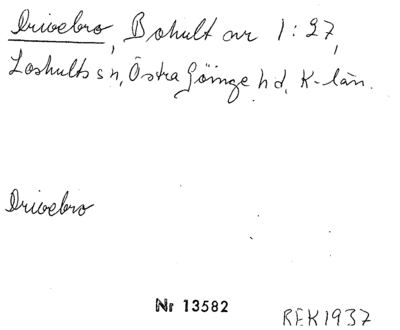 Drivebro, Bohult nr 1:27,
Loshults sn, Östra Göinge hd, K-län.
Drivebro
Nr 13582
REK1937